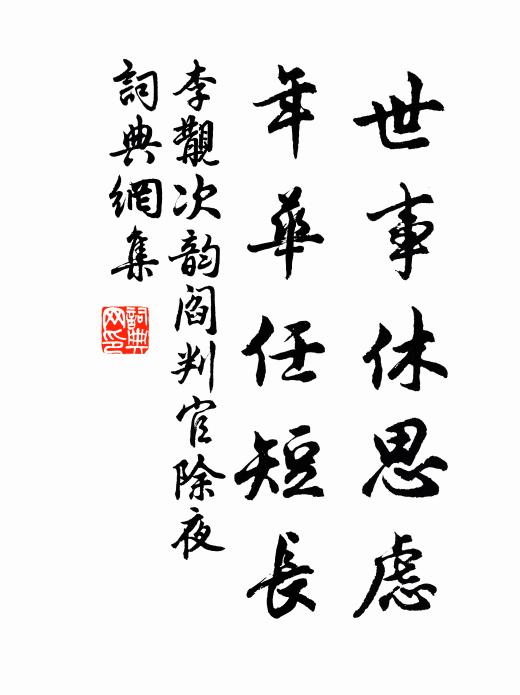 世事休思慮
年華任短長
李覯次韵閻判官除夜
詞典網集
詞典网印